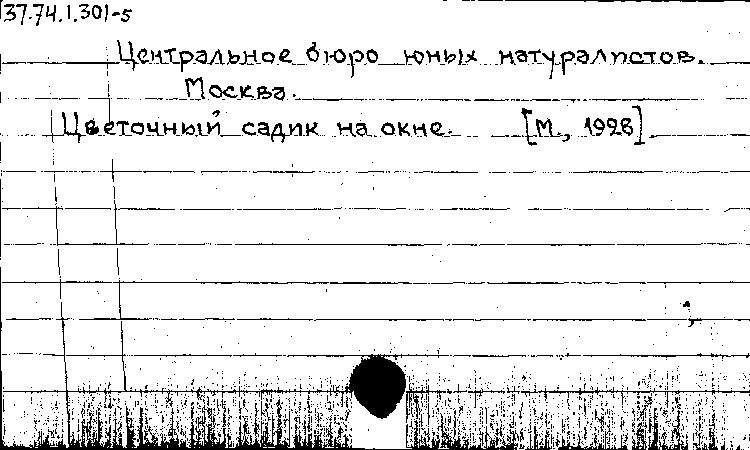 37.74.1.301-5
Центральное бюро юных натуралистов.
Москва.
Цветочный садик на окне. [М., 1928].